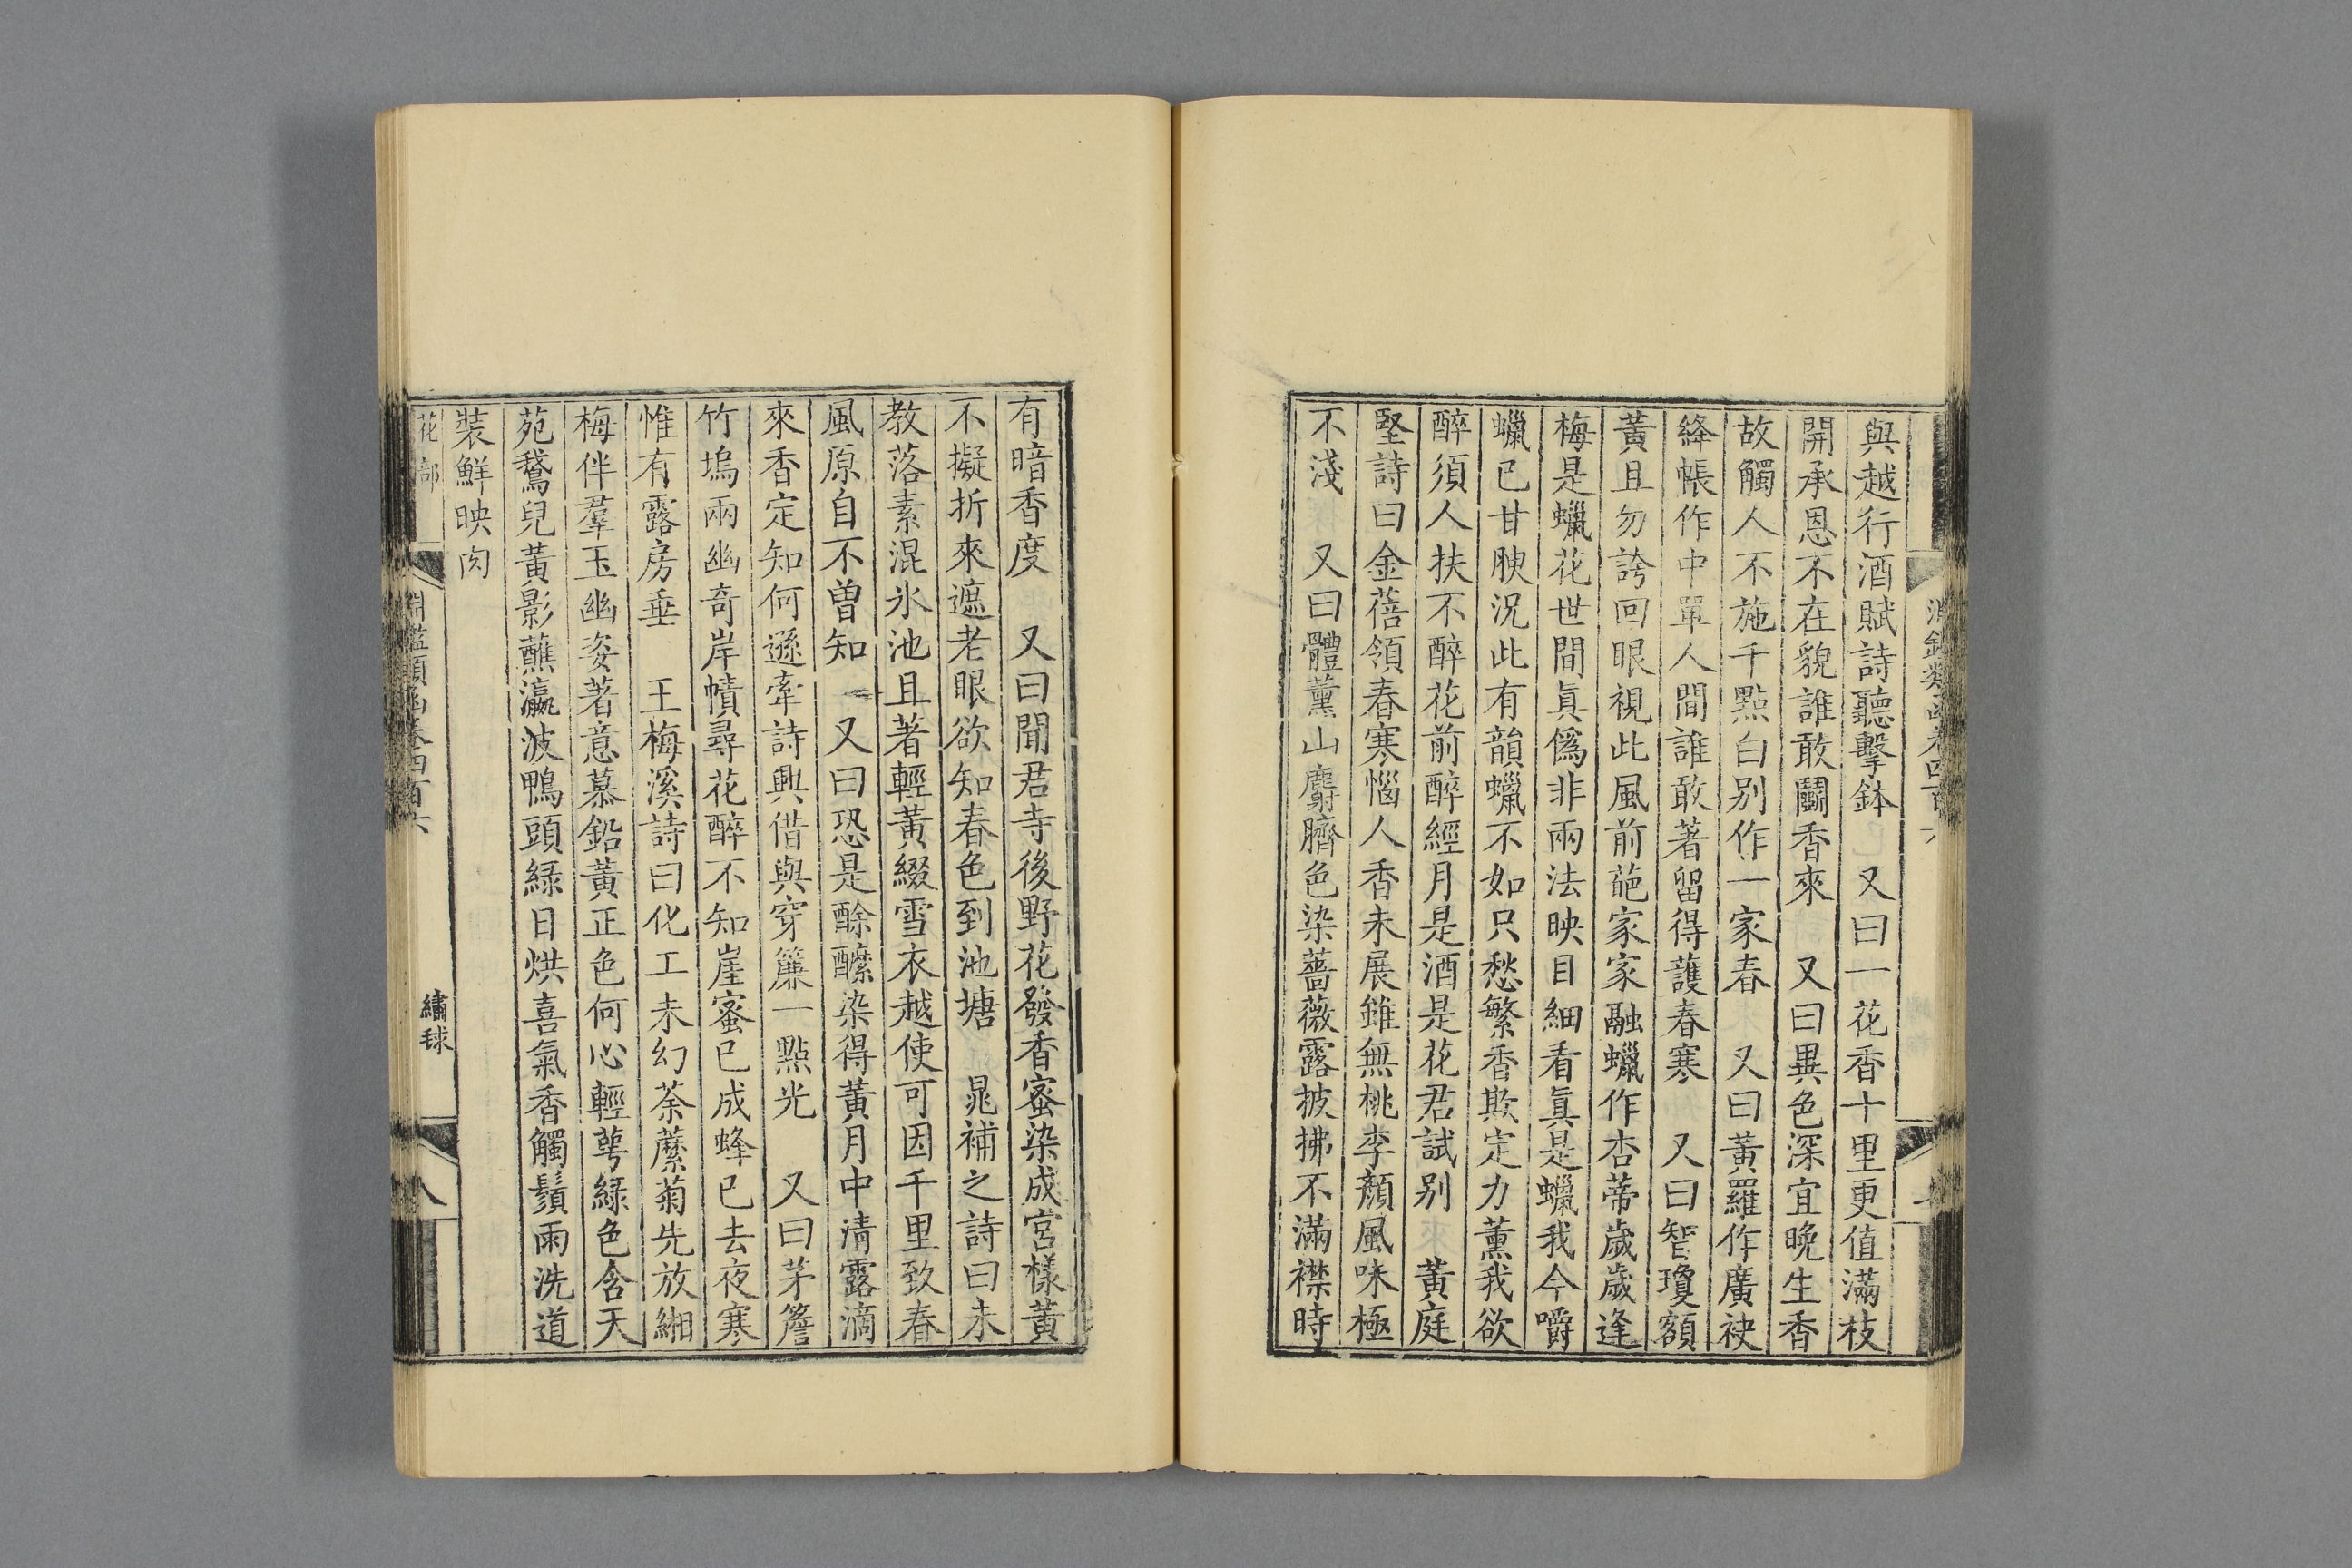 與越行酒賦詩聽擊鉢　又曰一花香十里更值滿枝
開承恩不在貌誰敢鬭香來　又曰異色深宜晚生香
故觸人不施千點白别作一家春　又曰黃羅作廣袂
絳帳作中單人間誰敢著留得護春寒　又曰智瓊額
黃且勿誇回眼視此風前葩家家融蠟作杏蒂歲歲逢
梅是蠟花世間眞僞非兩法映目細看眞是蠟我今嚼
蠟已甘腴況此有韻蠟不如只愁繁香欺定力薰我欲
醉須人扶不醉花前醉經月是酒是花君試别　黃庭
堅詩曰金蓓領春寒惱人香未展雖無桃李顏風味極
不淺　又曰體薰山麝臍色染薔薇露披拂不滿襟時
有暗香度　又曰聞君寺後野花發香蜜染成宮樣黃
不擬折來遮老眼欲知春色到池塘　晁補之詩曰未
教落素混氷池且著輕黃綴雪衣越使可因千里致春
風原自不曾知　又曰恐是酴醾染得黃月中清露滴
來香定知何遜牽詩興借與穿簾一點光　又曰茅簷
竹塢兩幽奇岸幘尋花醉不知崖蜜已成蜂已去夜寒
惟有露房垂　王梅溪詩曰化工未幻荼蘼菊先放緗
梅伴羣玉幽姿著意慕鉛黃正色何心輕萼綠色含天
苑鵞兒黃影蘸瀛波鴨頭綠日烘喜氣香觸鬚雨洗道
裝鮮映肉
花部
淵鑑類函卷四百六
繡毬
八